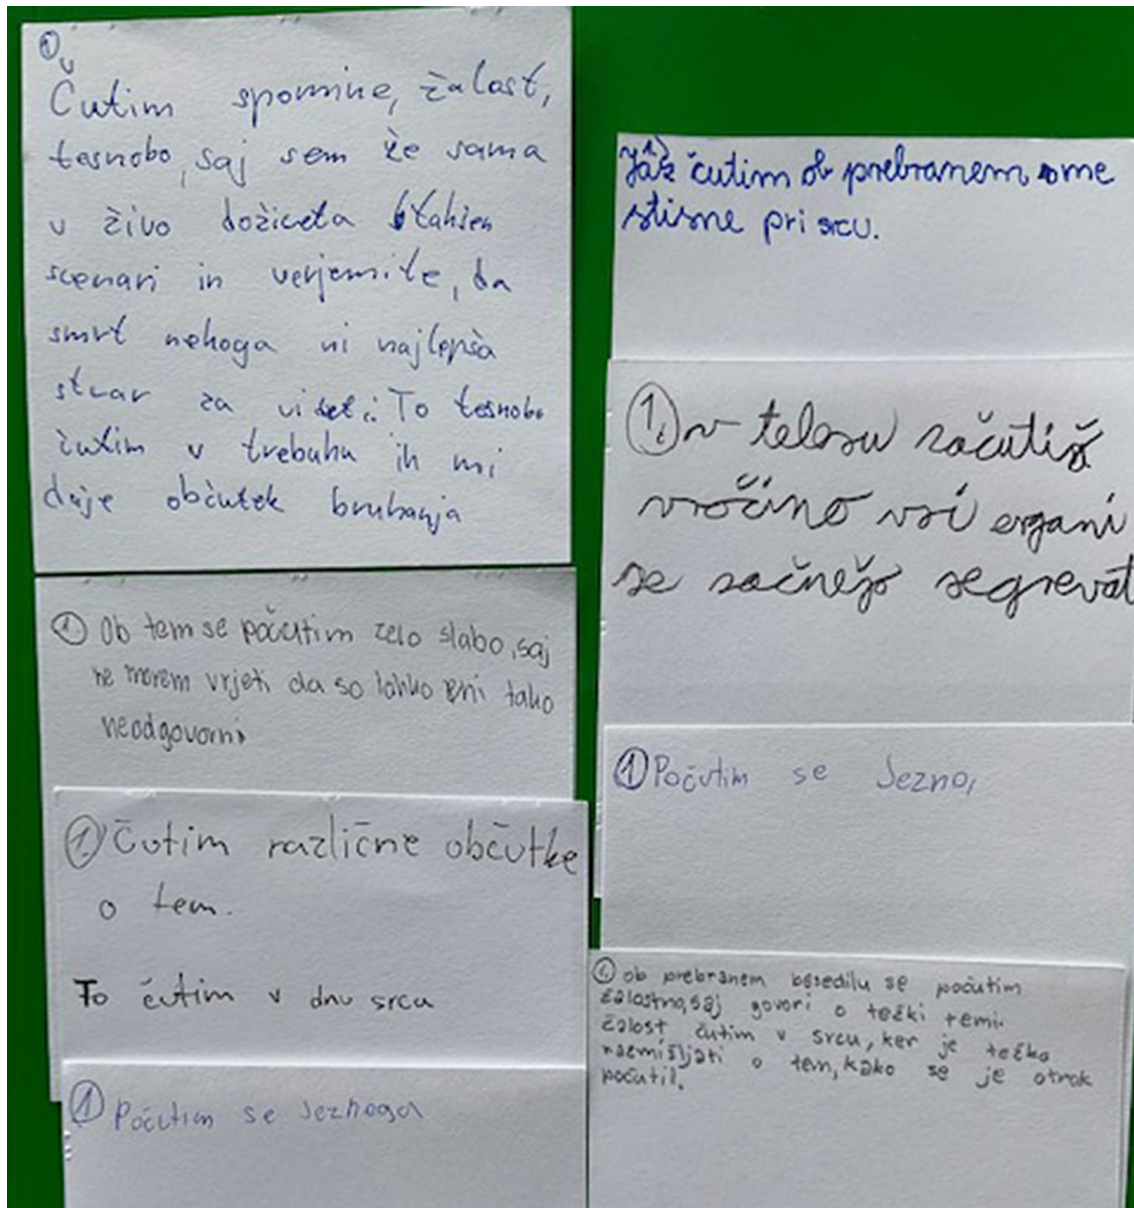 1
Čutim spomine, žalost,
tesnobo, saj sem že sama
v živo doživeta takšen
scenari in verjemite, da
smrt nekoga ni najlepša
stvar za videt. To tesnobo
čutim v trebuhu in mi
daje občutek bruhanja
1 Ob tem se počutim zelo slabo, saj
ne morem vrjeti da so lahko eni tako
neodgovorni
1. Čutim različne občutke
o tem.
To čutim v dnu srca
1 Počutim se Jeznega
Jaz čutim ob prebranem me
stisne pri srcu.
1. v telesu začutiš
vročino vsi organi
se začnejo segrevat
1 Počutim se Jezno,
1. ob prebranem besedilu se počutim
žalostno, saj govori o težki temi.
žalost čutim v srcu, ker je težko
razmišljati o tem, kako se je otrok
počutil.